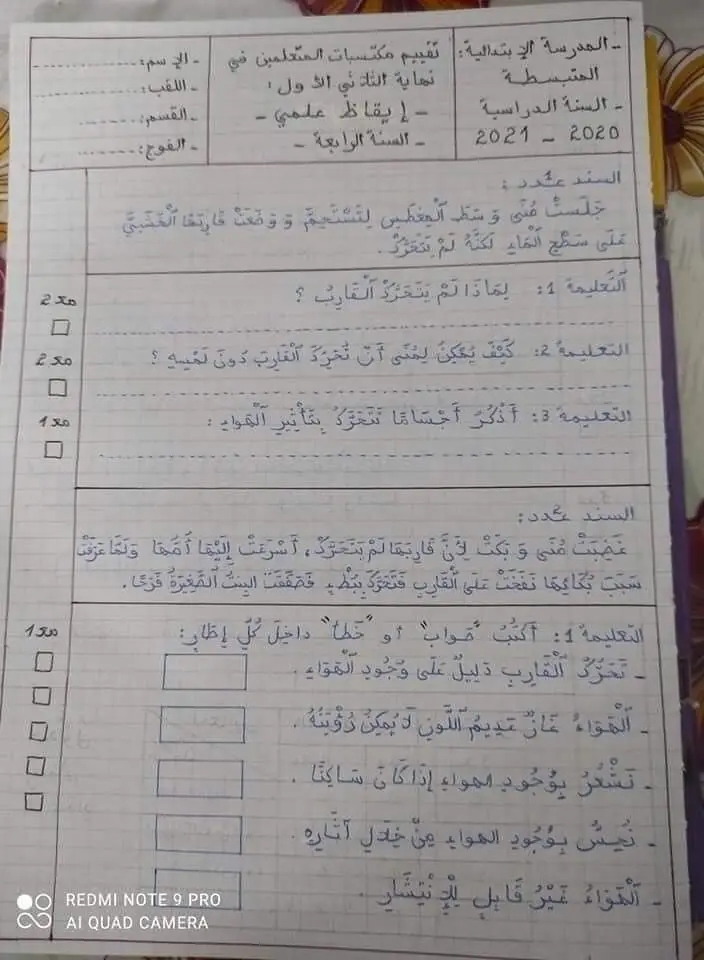 - المدرسة الإبتدائية:
المتبسطة
- السنة الدراسية
2020 - 2021
تقييم مكتسبات المتعلمين في
نهاية الثلاثي الأول:
- إيقاظ علمي -
- السنة الرابعة -
- الإسم: ....................
- اللقب: ....................
- القسم: ....................
- الفوج: ............
السند عدد:
جَلَسَتْ مُنَى وَسَطَ الْمِغْطَسِ لِتَسْتَحِمَّ وَ وَضَعَتْ قَارِبَهَا الْخَشَبِيَّ
عَلَى سَطْحِ الْمَاءِ لَكِنَّهُ لَمْ يَتَحَرَّكْ.
التَّعْلِيمة 1: لِمَاذَا لَمْ يَتَحَرَّكْ الْقَارِبُ ؟
مع 2
التعليمة 2: كَيْفَ يُمْكِنُ لِمُنَى أَنْ تُحَرِّكَ الْقَارِبَ دُونَ لَمْسِهِ ؟
مع 2
التعليمة 3: أَذْكُرُ أَجْسَامًا تَتَحَرَّكُ بِتَأْثِيرِ الْهَوَاءِ :
مع 1
السند عدد:
غَضِبَتْ مُنَى وَ بَكَتْ لِأَنَّ قَارِبَهَا لَمْ يَتَحَرَّكْ، أَسْرَعَتْ إِلَيْهَا أُمُّهَا وَلَمَّا عَرَفَتْ
سَبَبَ بُكَائِهَا نَفَخَتْ عَلَى الْقَارِبِ فَتَحَرَّكَ بِبُطْءٍ فَصَفَّقَتْ البِنْتُ الصَّغِيرَةُ فَرَحًا.
التعليمة 1: أَكْتُبُ "صَوَاب" أو "خَطَأ" دَاخِلَ كُلِّ إِطَارٍ:
مع 1
- تَحَرُّكُ الْقَارِبِ دَلِيلٌ عَلَى وُجُودِ الْهَوَاءِ.
- الْهَوَاءُ غَازٌ عَدِيمُ اللَّوْنِ لَا يُمْكِنُ رُؤْيَتُهُ.
- نَشْعُرُ بِوُجُودِ الهواءِ إِذَا كَانَ سَاكِنًا.
- نُحِسُّ بِوُجُودِ الهواءِ مِنْ خِلَالِ آثَارِهِ.
- الْهَوَاءُ غَيْرُ قَابِلٍ لِلْإِنْتِشَارِ.
REDMI NOTE 9 PRO
AI QUAD CAMERA